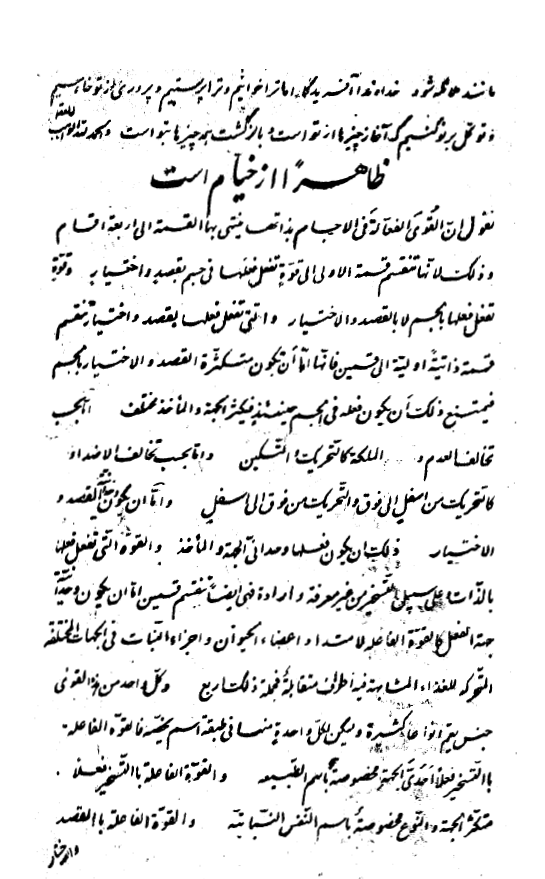 مانند هاله شود خداوندا آفریدگارا ما ترا خوانیم و ترا پرستیم و پروردن از تو خواهیم
و توکل بر تو کنیم که آغاز چیزها از تو است و بازگشت همه چیزها بتو است والحمد لله
ظاهراً از خیام است
نقول ان القوی الفعالة فی الاجسام بذاتها ینتهی بها القسمة الی اربعة اقسام
وذلک لانها تنقسم قسمة الاولی الی قوة تفعل فعلها فی جسم بقصد واختیار وقوة
تفعل فعلها بالجسم لا بالقصد والاختیار والتی تفعل فعلها بقصد واختیار تنقسم
قسمة ذاتیة اولیة الی قسمین فانها اما أن تکون متکثرة القصد والاختیار بالجسم
فیتسع ذلک أن یکون فعله فی الجسم حینئذ متکثر الجهة والمأخذ مختلف
تخالف العدم و الملکة کالتحریک والتسکین واما بحسب تخالف الاضداد
کالتحریک من اسفل الی فوق والتحریک من فوق الی اسفل واما ان یکون القصد و
الاختیار ذلک ان یکون فعلها وحدانی الجهة والمأخذ والقوة التی تفعل فعلها
بالذات وعلی سبیل التسخیر من غیر معرفة وارادة فهی ایضاً تنقسم قسمین اما ان یکون وحدانیة
جهة الفعل کالقوة الفاعلة لامتداد اعضاء الحیوان واجزاء النبات فی الجهات المختلفة
المتحرکة للغذاء المشابهة فیه اطراف متقابلة فجملة ذلک اربع وکل واحد من هذه القوی
جنس یعم انواعا کثیرة ولیکن لکل واحدة منها فی طبقة اسم یخصه فالقوة الفاعلة
بالتسخیر فعلاً أحدی الجهة مخصوصة باسم الطبیعه والقوة الفاعلة بالتسخیر فعلاً
متکثر الجهة والنوع مخصوصة باسم النفس النباتیة والقوة الفاعلة بالقصد
والاختیار